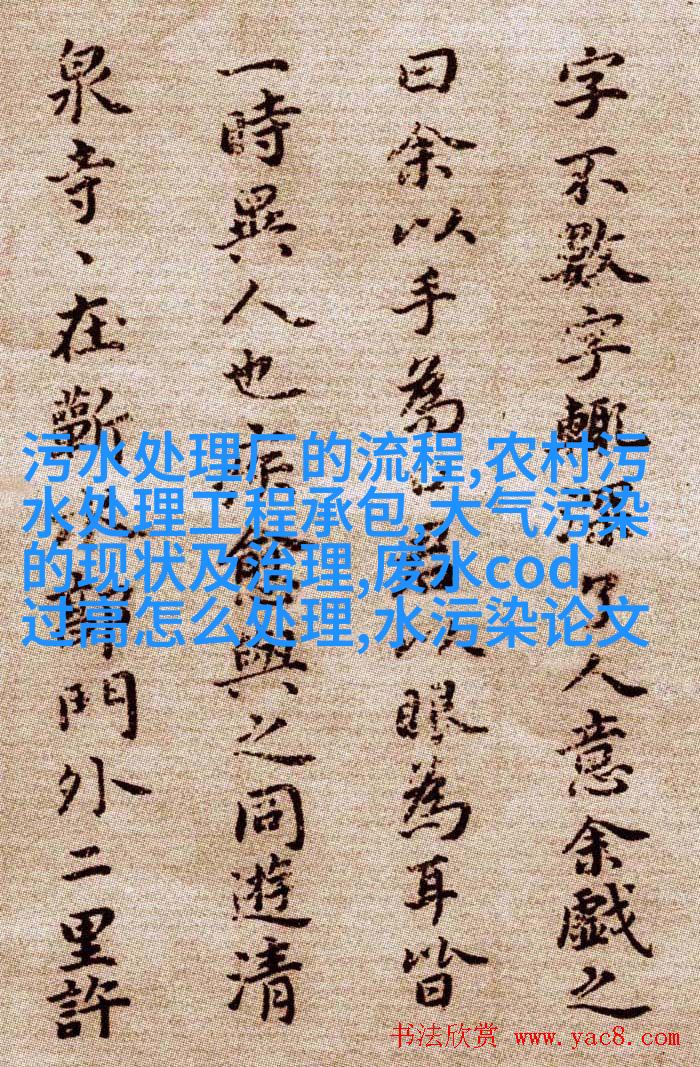 字不數字輒深了人意余戲之
曰余以手為以眼為耳皆
一時異人也疾愈與之同遊清
泉寺、在蘄水郭門外二里許
污水处理厂的流程,农村污
水处理工程承包,大气污染
的现状及治理,废水cod
过高怎么处理,水污染论文
书法欣赏 www.yac8.com